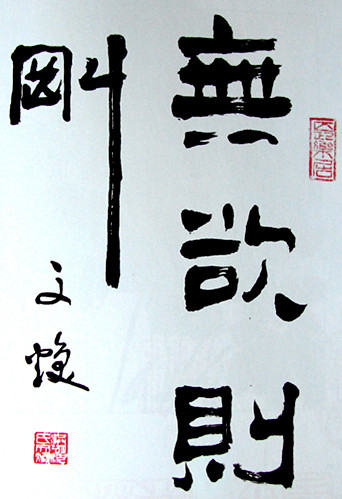 無欲則
剛
文